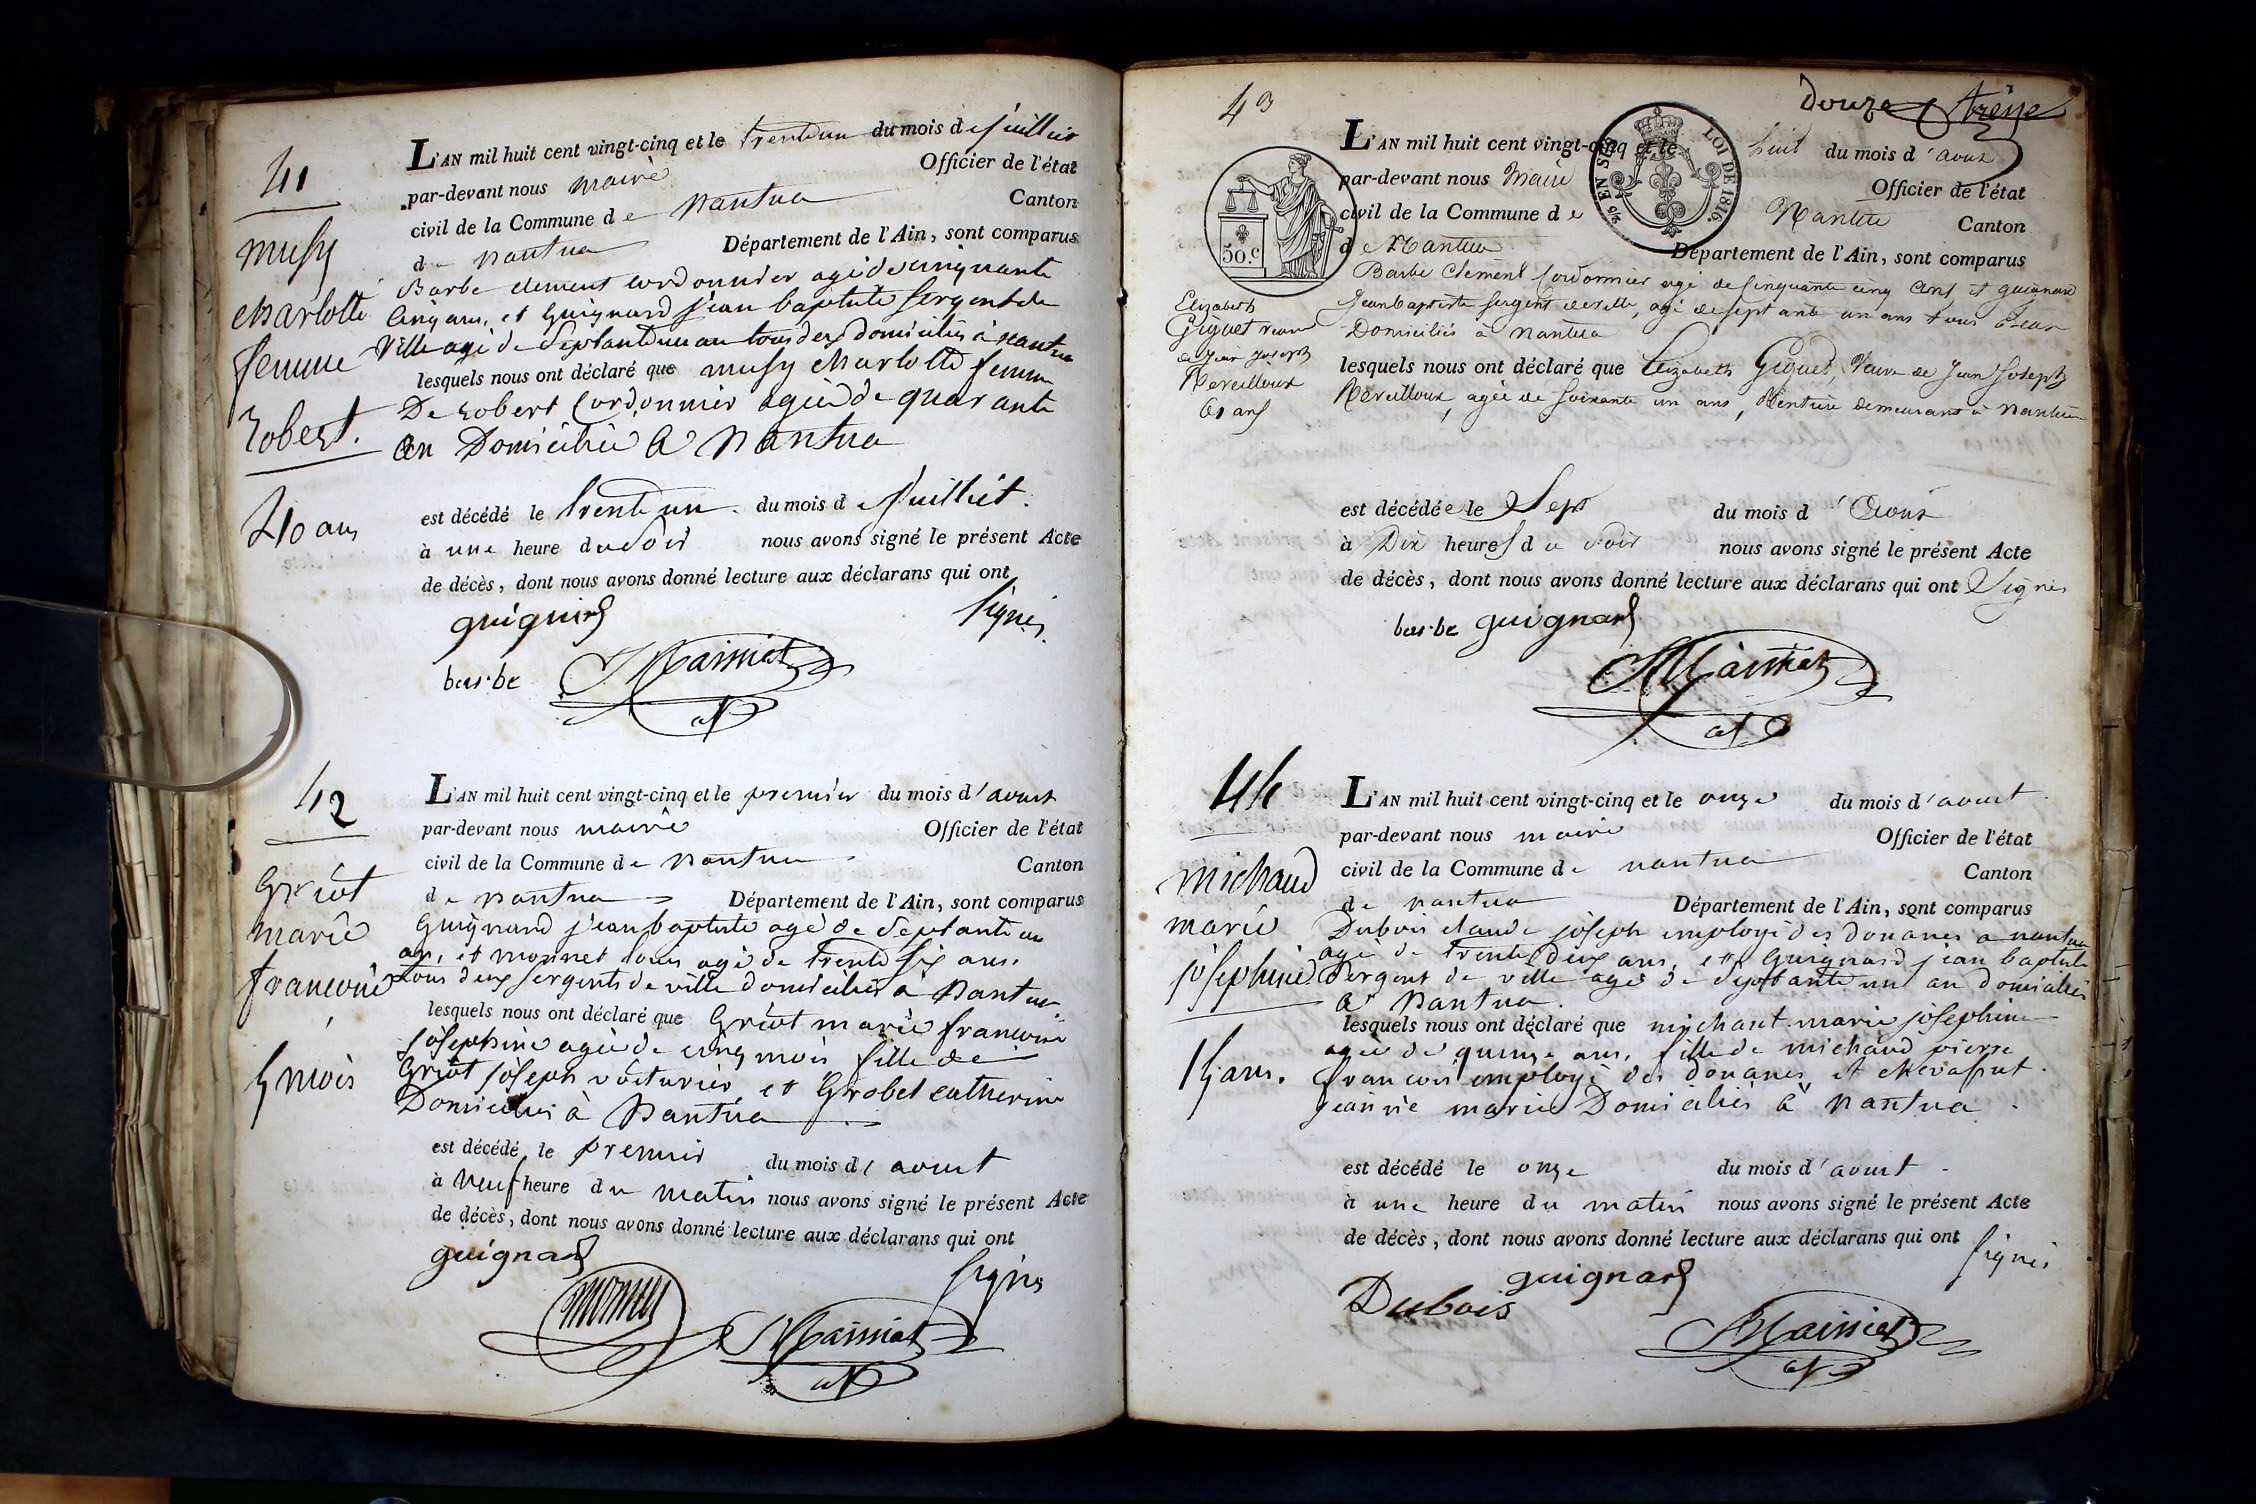 41
musy
charlotte
femme
Robert.
40 ans
L'AN mil huit cent vingt-cinq et le trente un du mois de juillier
par-devant nous maire Officier de l'état
civil de la Commune de nantua Canton
de nantua Département de l'Ain, sont comparus
Barbe clement cordonnier agé de cinquante
cinq ans, et Guignard jean baptiste sergent de
Ville agé de septante un an tous deux domiciliés à nantua
lesquels nous ont déclaré que musy charlotte femme
De Robert Cordonnier agée de quarante
an Domicilié A nantua
est décédé le trente un du mois de juilliet.
à une heure du soir nous avons signé le présent Acte
de décès, dont nous avons donné lecture aux déclarans qui ont
signés.
guignard
barbe Maissiat
42
Griot
marie
francoise
5 mois
L'AN mil huit cent vingt-cinq et le premier du mois d'aoust
par-devant nous maire Officier de l'état
civil de la Commune de nantua Canton
de nantua Département de l'Ain, sont comparus
Guignard jean baptiste agé de septante un
an, et monnet louis agé de trente six ans.
tous deux sergents de ville domiciliés à nantua.
lesquels nous ont déclaré que Griot marie francoise
josephine agée de cinq mois fille de
Griot joseph voiturier et Grobet catherine
Domiciliés à Nantua
est décédé le premier du mois d'aoust
à neuf heure du matin nous avons signé le présent Acte
de décès, dont nous avons donné lecture aux déclarans qui ont
signés
guignard
monnet Maissiat
douze treize
43
50.c
EN SUS LOI DE 1816.
Elizabeth
Giguet veuve
de jean joseph
Mereilloux
61 ans
L'AN mil huit cent vingt-cinq et le huit du mois d'aoust
par-devant nous Maire Officier de l'état
civil de la Commune de Nantua Canton
de Nantua Département de l'Ain, sont comparus
Barbe Clement Cordonnier agé de cinquante cinq ans, et guignard
Jean baptiste sergent de ville, agé de septante un ans tous deux
Domiciliés à nantua
lesquels nous ont déclaré que Elizabeth Giguet, Veuve de Jean Joseph
Mereilloux, agée de soixante un ans, Rentière demeurant à nantua
est décédée le Sept du mois d'Aoust
à Dix heures du soir nous avons signé le présent Acte
de décès, dont nous avons donné lecture aux déclarans qui ont Signés
barbe guignard
Maissiat
44
michaud
marie
josephine
15 ans.
L'AN mil huit cent vingt-cinq et le onze du mois d'aoust
par-devant nous maire Officier de l'état
civil de la Commune de nantua Canton
de nantua Département de l'Ain, sont comparus
Dubois claude joseph employé des douanes a nantua
agé de trente deux ans, et Guignard jean baptiste
sergent de ville agé de septante un an domiciliés
à Nantua.
lesquels nous ont déclaré que michaut marie josephine
agée de quinze ans, fille de michaud pierre
francois employé des douanes et chevassut
jeanne marie Domiciliés à nantua.
est décédé le onze du mois d'aoust
à une heure du matin nous avons signé le présent Acte
de décès, dont nous avons donné lecture aux déclarans qui ont
signés
guignard
Dubois
Maissiat